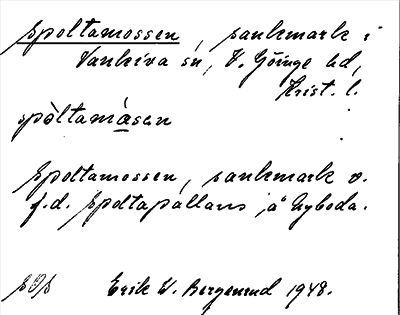 Spoltamossen, sankmark i
Vankiva sn, V. Göinge hd,
Krist. l.
spòltamå̀san
Spoltamossen, sankmark o.
f.d. Spoltapallans, å Nyboda.
Erik W. Bergenrud 1948.